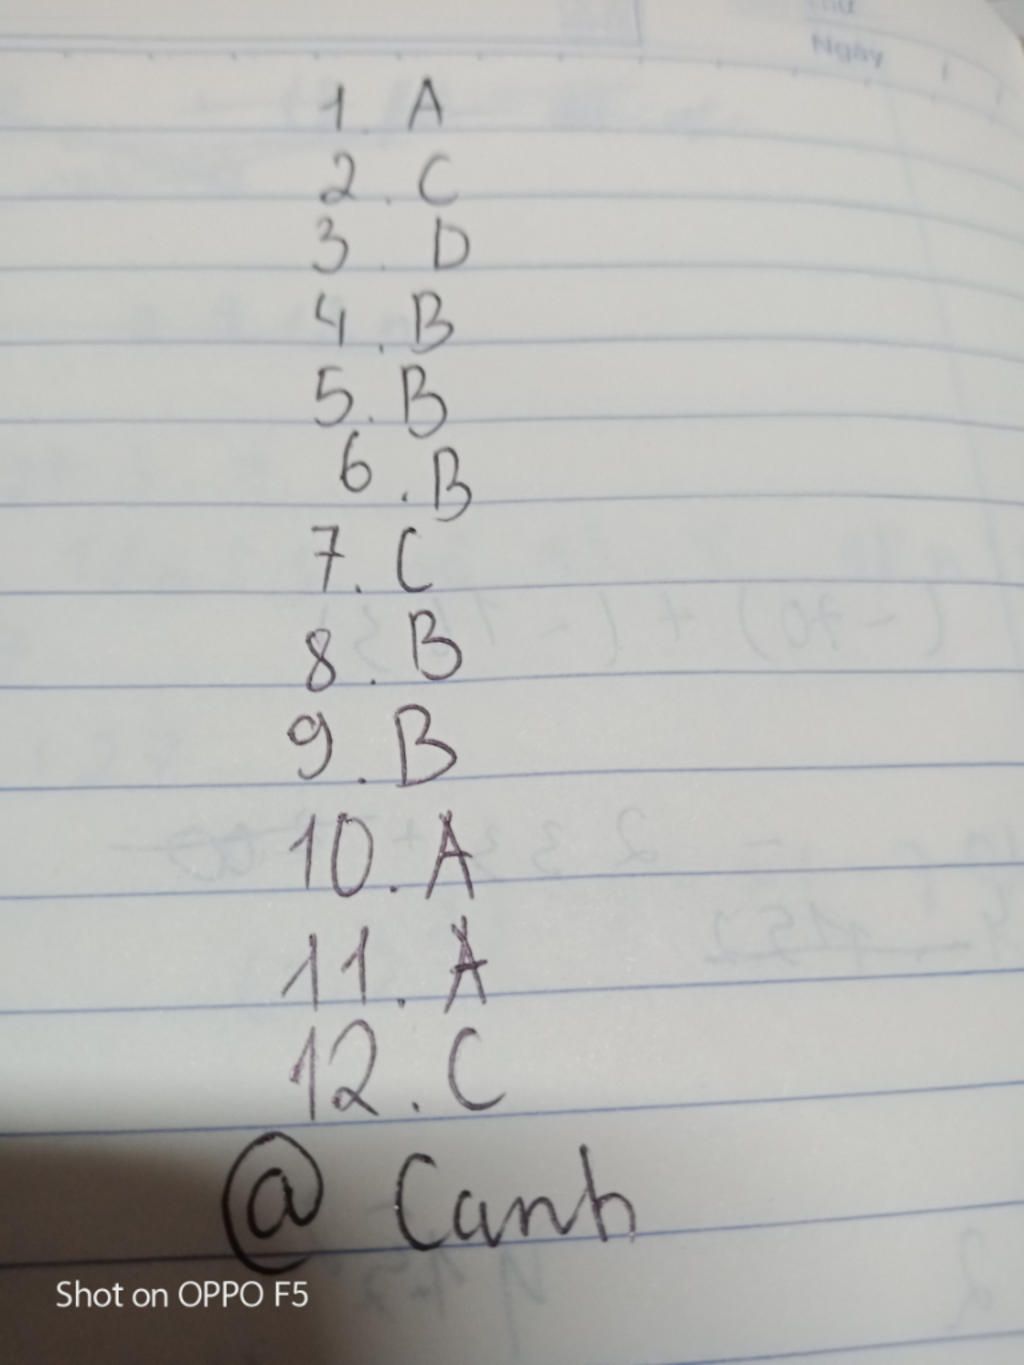 Thứ
Ngày
1. A
2. C
3. D
4. B
5. B
6. B
7. C
8. B
9. B
10. A
11. A
12. C
@ Canh
Shot on OPPO F5